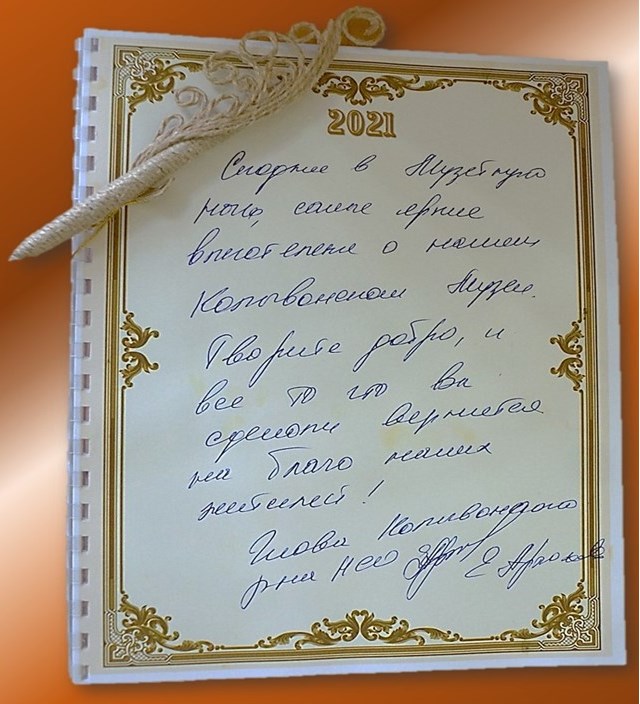 2021
Сегодня в Музейную
ночь, самые яркие
впечатления о нашем
Колыванском Музеи.
Творите добро, и
все то что вы
сделали вернется
на благо наших
жителей!
Глава Колыванского
р-на НСО Е Артюхов